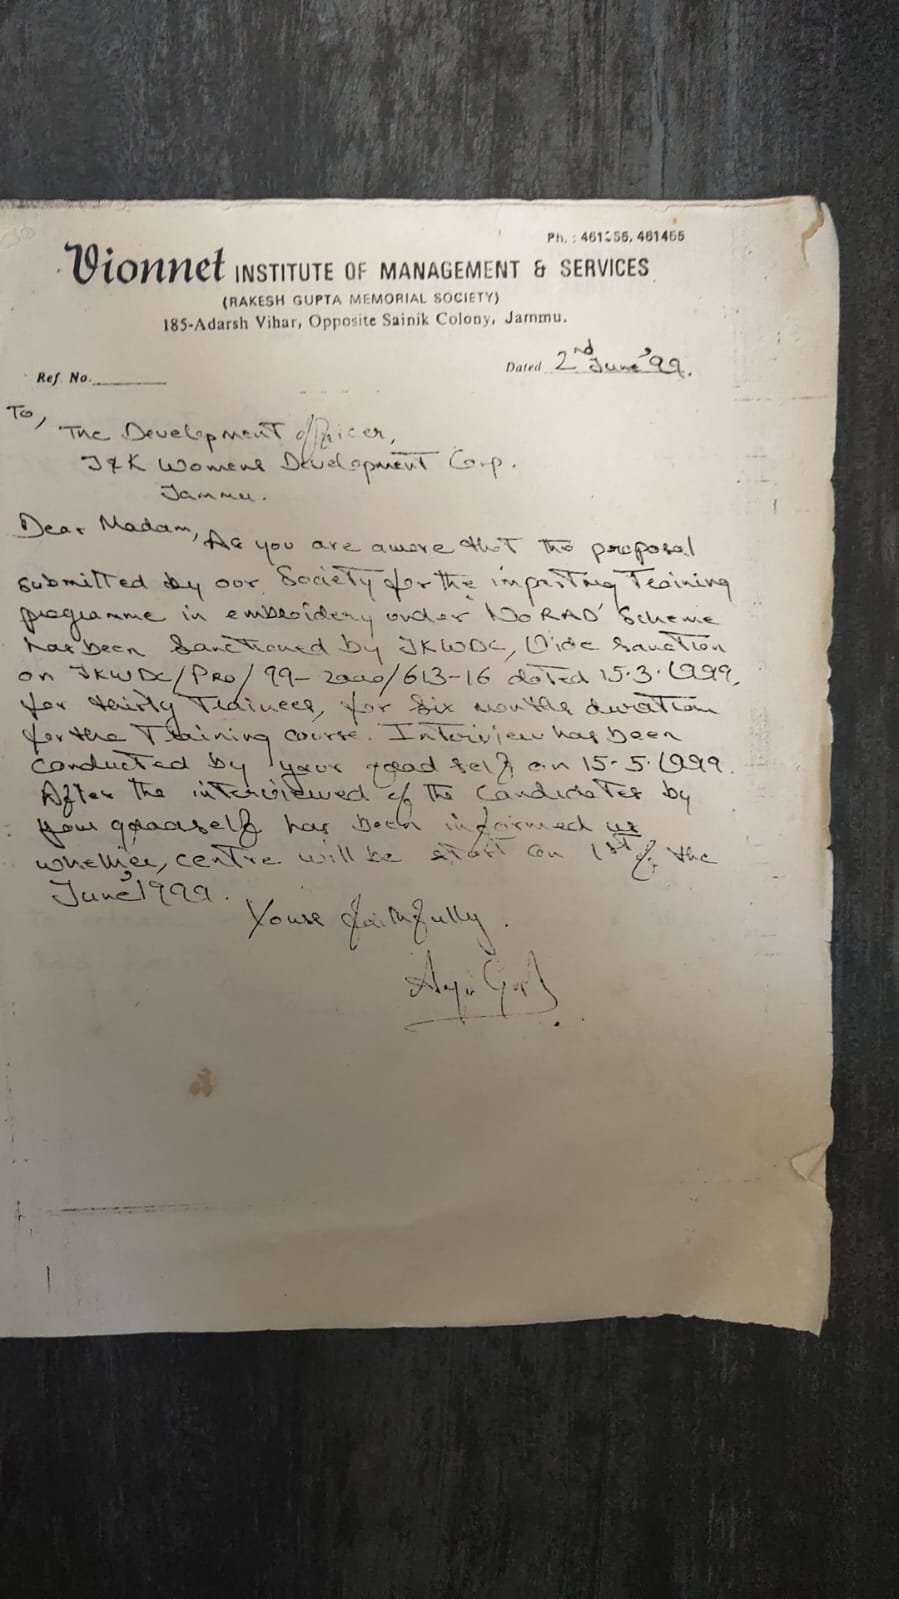 Ph. : 461355, 461455
Vionnet INSTITUTE OF MANAGEMENT & SERVICES
(RAKESH GUPTA MEMORIAL SOCIETY)
185-Adarsh Vihar, Opposite Sainik Colony, Jammu.
Dated 2nd June'99.
Ref. No.
To,
The Development Officer,
J&K Womens Development Corp.
Jammu.
Dear Madam,
As you are awere that the proposal
submitted by our Society for the imparting Training
programme in embroidery under NORAD' Scheme
has been Sanctioned by JKWDC, Vide Sanction
on JKWDC/PRO/99-2000/613-16 dated 15.3.1999,
for thirty Trainees, for Six months duration
for the Training course. Interview has been
conducted by your good self on 15-5.1999.
After the interviewed of the Candidates by
your goodself has been informed us
whether, centre will be start on 1st of the
June'1999.
Yours faithfully.